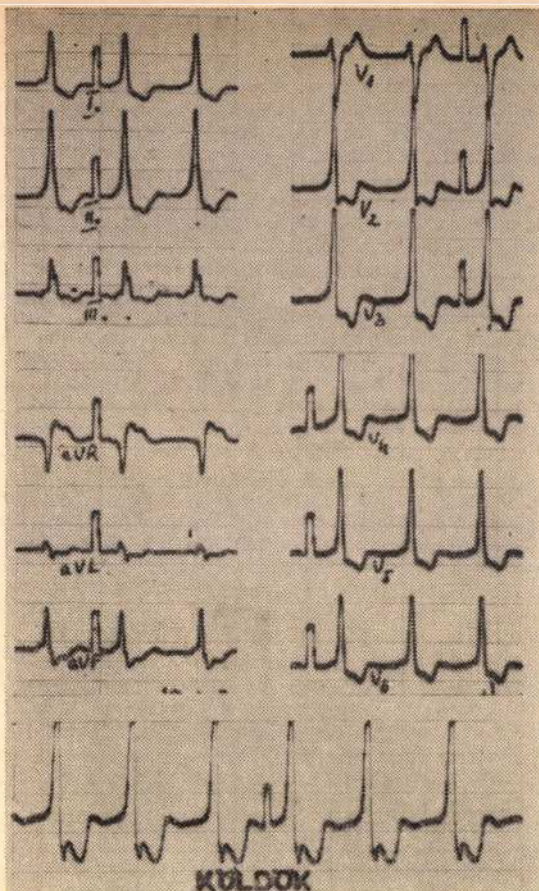 I.
II.
III.
aVR
aVL
aVF
V1
V2
V3
V4
V5
V6
KÜLDÖK